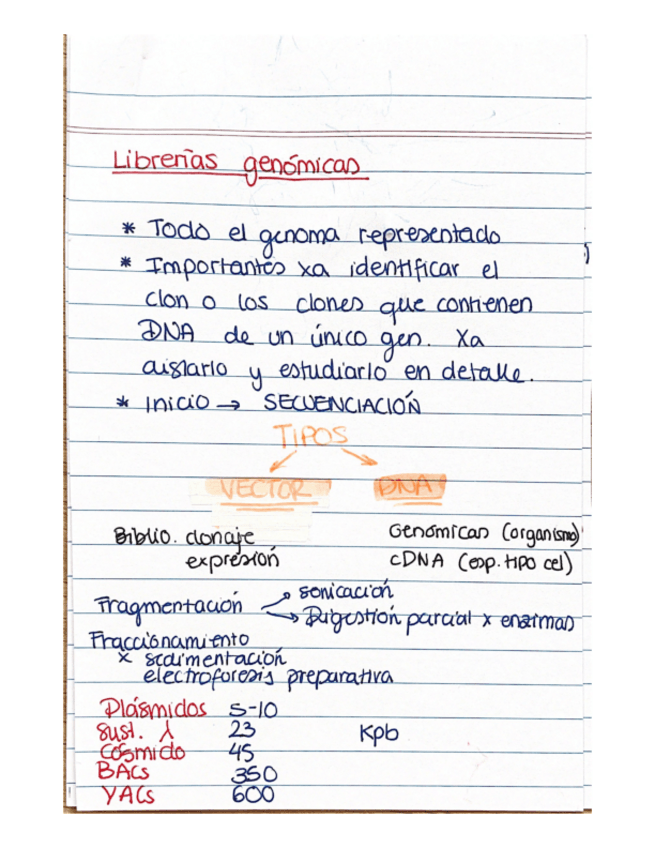 Librerías genómicas
* Todo el genoma representado
* Importantes xa identificar el
clon o los clones que contienen
DNA de un único gen. Xa
aislarlo y estudiarlo en detalle.
* Inicio → SECUENCIACIÓN
TIPOS
VECTOR DNA
Biblio. clonaje Genómicas (organismo)
expresión cDNA (esp. tipo cel)
Fragmentación → sonicación
→ Digestión parcial x enzimas
Fraccionamiento
x sedimentación
electroforesis preparativa
Plásmidos 5-10
Sust. λ 23 Kpb
Cósmido 45
BACs 350
YACs 600